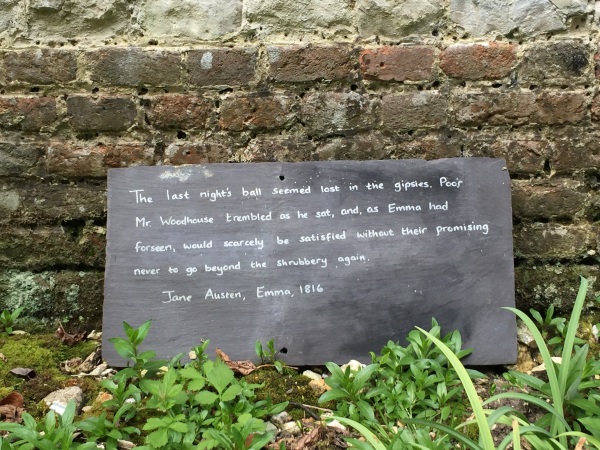 The last night's ball seemed lost in the gipsies. Poor
Mr. Woodhouse trembled as he sat, and, as Emma had
forseen, would scarcely be satisfied without their promising
never to go beyond the shrubbery again.
Jane Austen, Emma, 1816